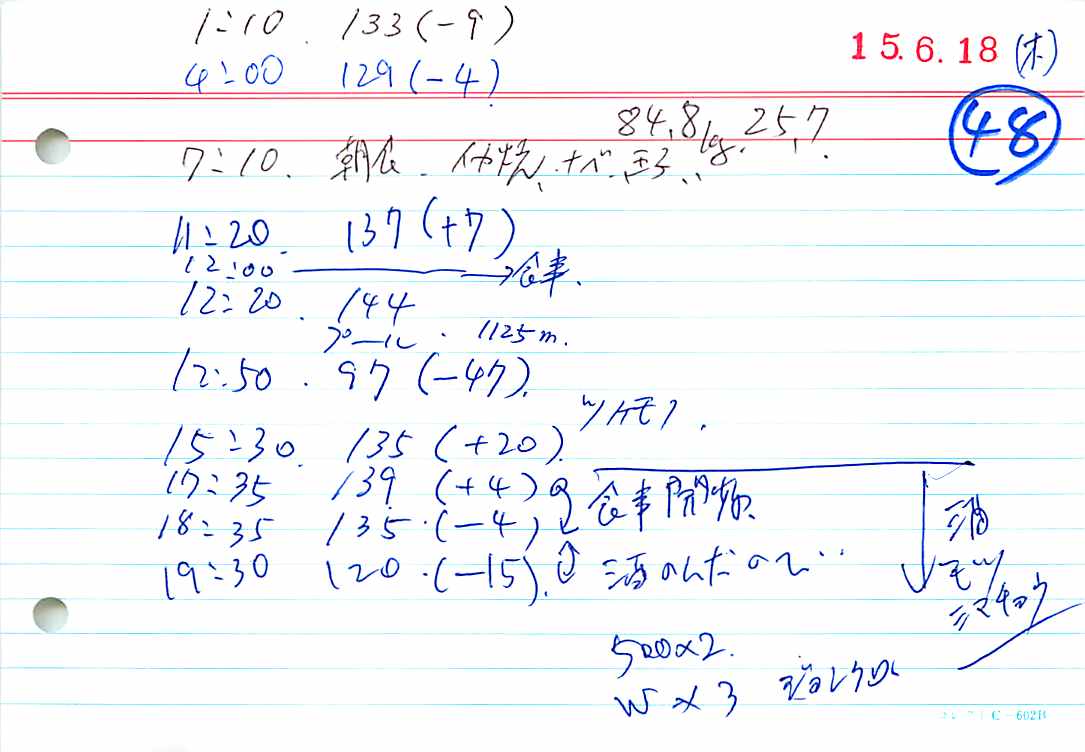 1:10. 133(-9)
15.6.18 (木)
4:00 129(-4)
48
84.8kg. 25.7
7:10. 朝食.
11:20. 137(+7)
12:00 → 食事.
12:20. 144
プール. 1125m.
12:50. 97(-47).
15:30. 135(+20).
17:35 139(+4) 食事開始
18:35 135.(-4)
19:30 120.(-15). 酒のんだので…
酒
モツ
シマチョウ
500×2.
W×3